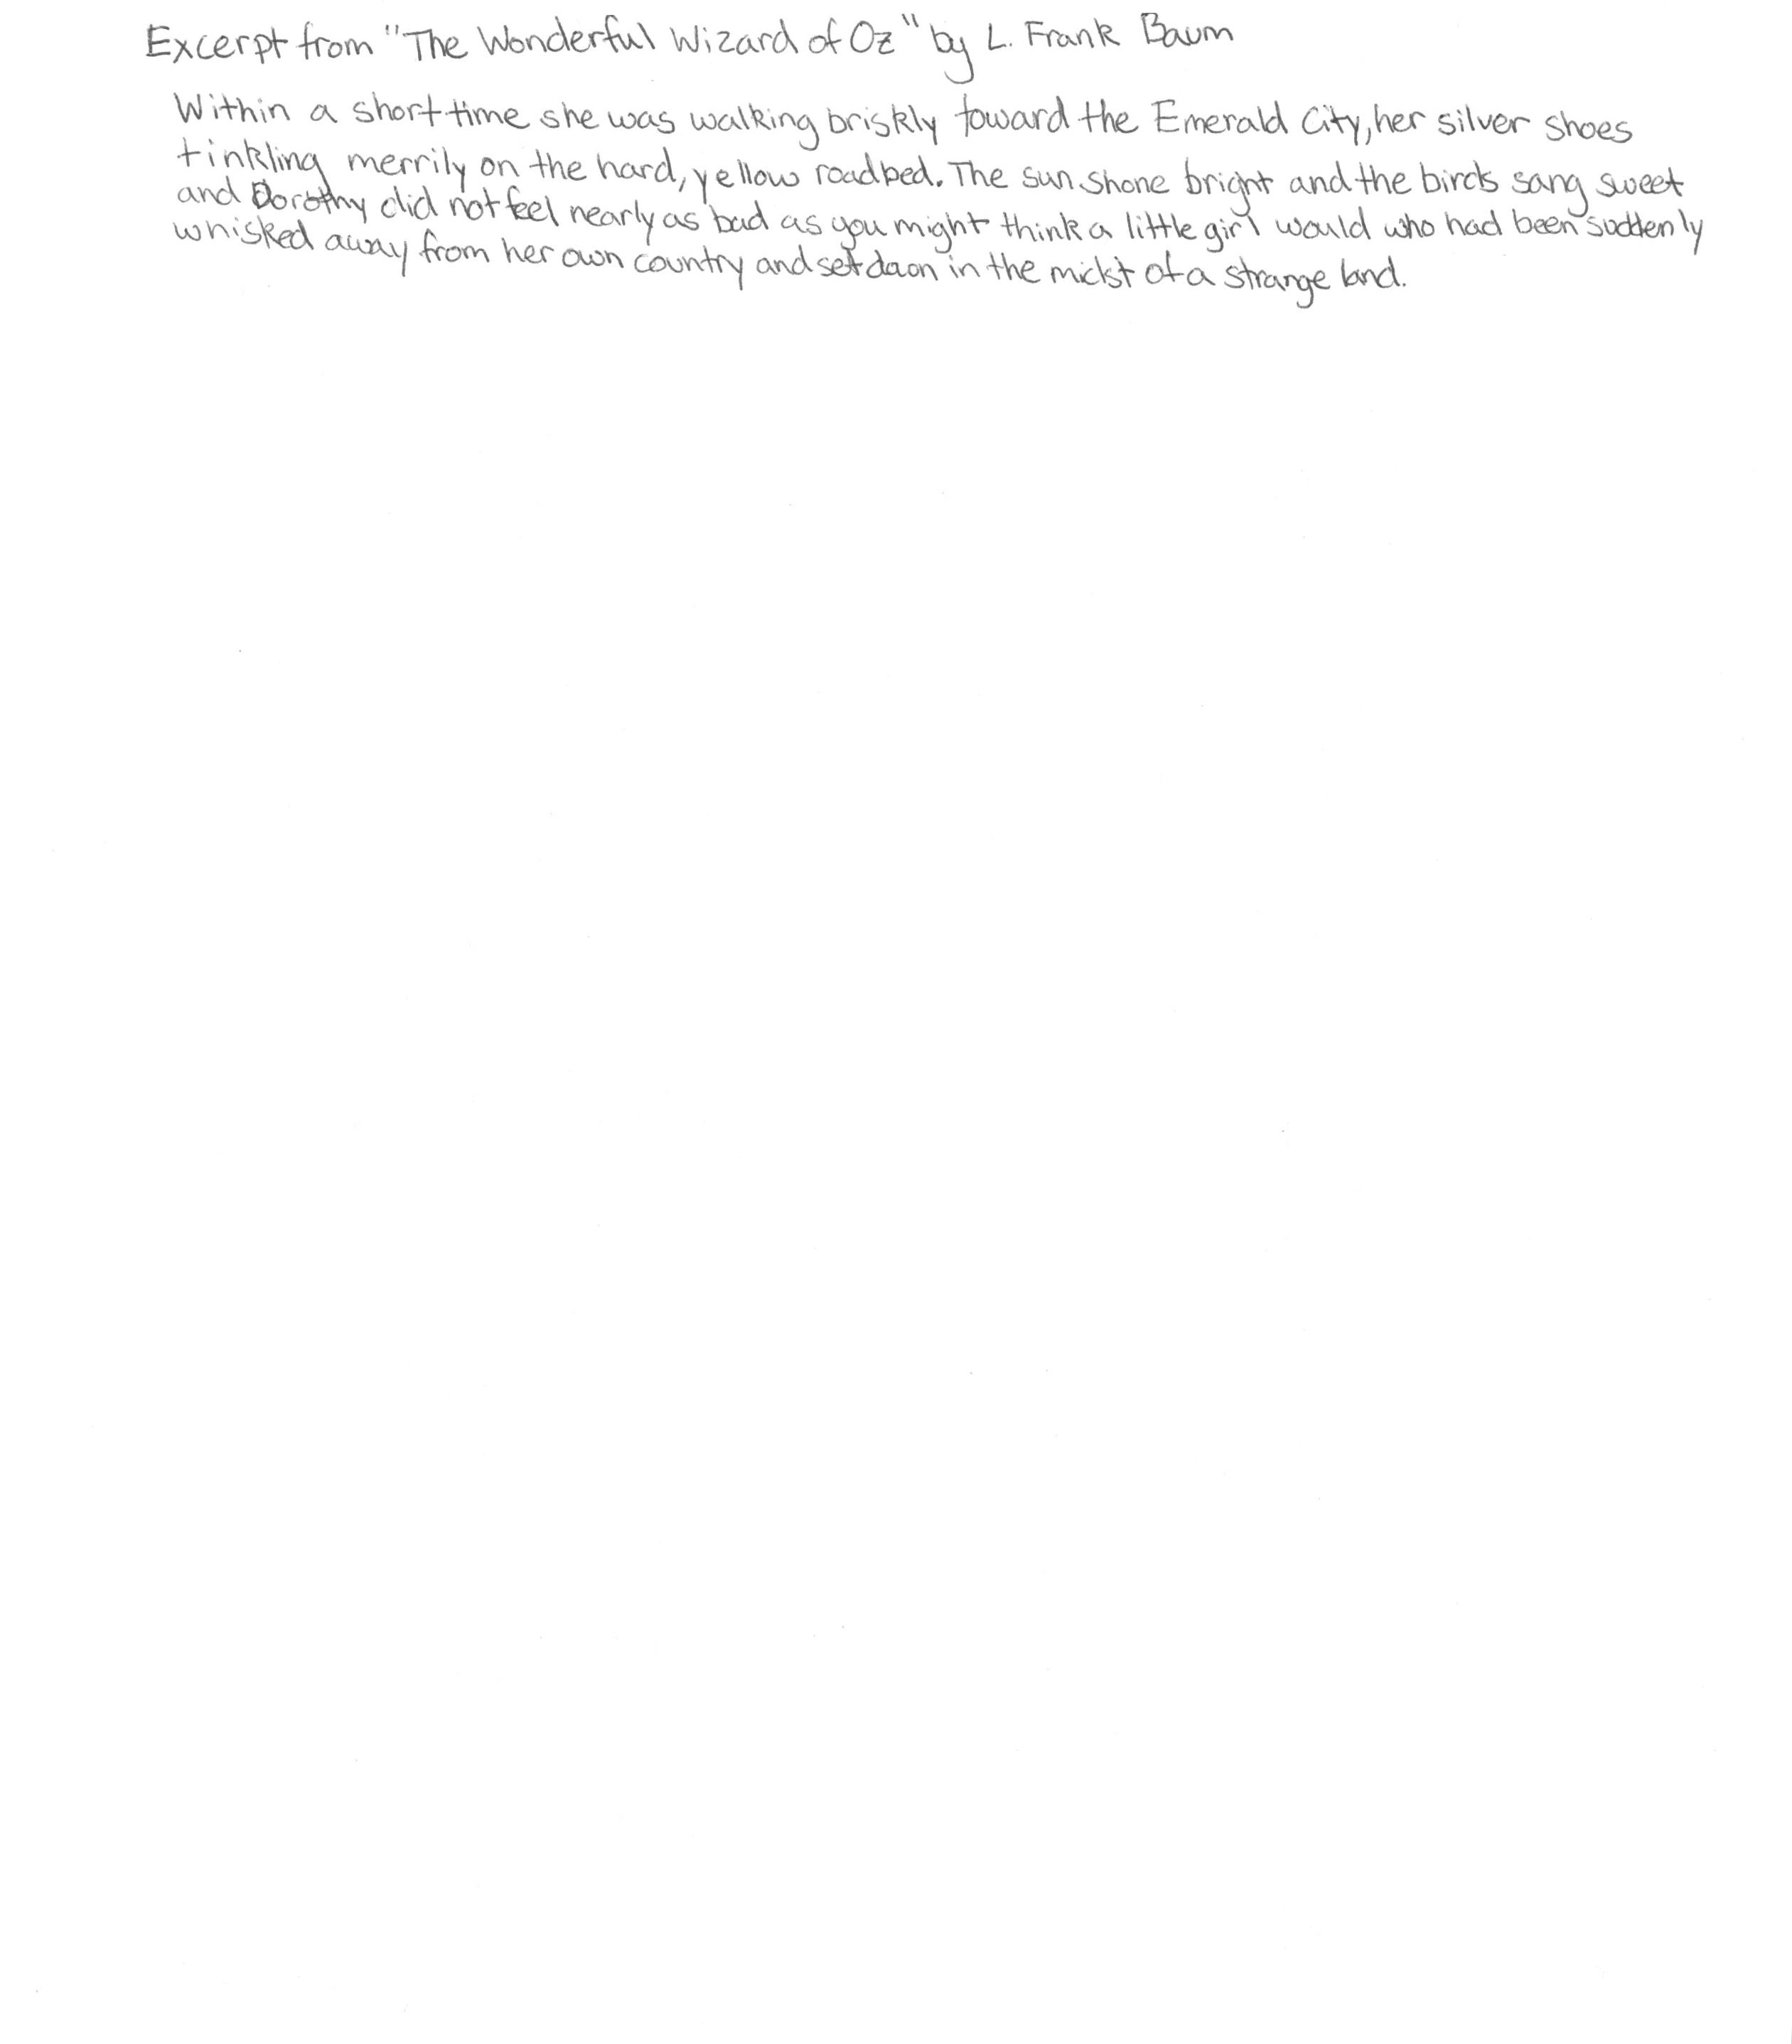 Excerpt from "The Wonderful Wizard of Oz" by L. Frank Baum
Within a short time she was walking briskly toward the Emerald City, her silver shoes
tinkling merrily on the hard, yellow roadbed. The sun shone bright and the birds sang sweet
and Dorothy did not feel nearly as bad as you might think a little girl would who had been suddenly
whisked away from her own country and set down in the midst of a strange land.